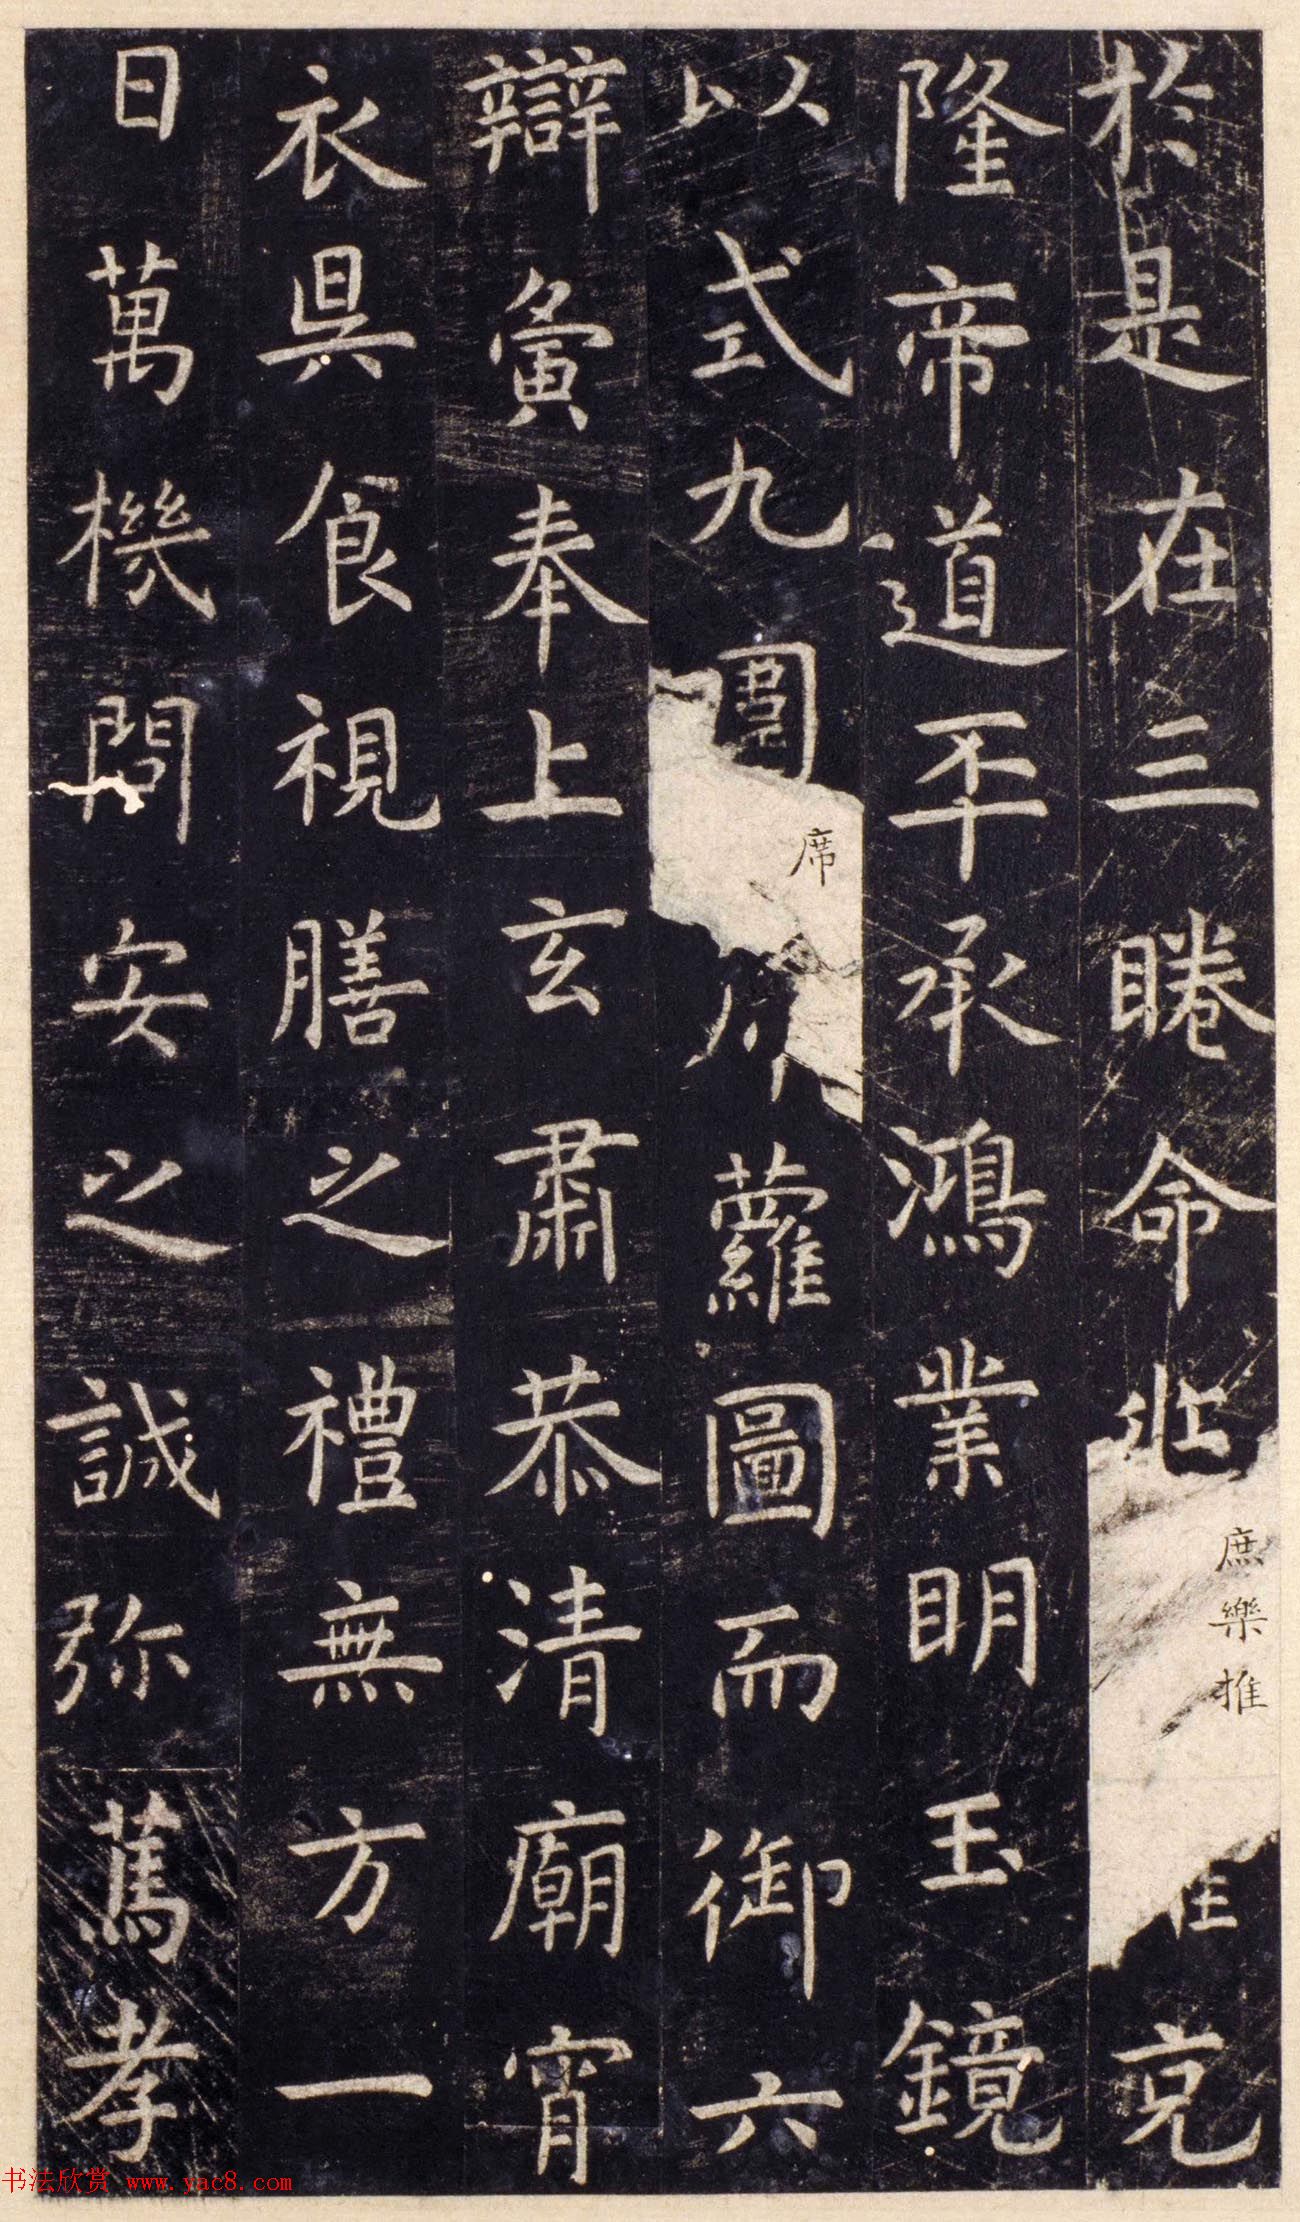 於是在三睠命兆庶樂推克
隆帝道丕承鴻業明玉鏡
以式九圍席蘿圖而御六
辯寅奉上玄肅恭清廟宵
衣昃食視膳之禮無方一
日萬機問安之誠弥篤孝
书法欣赏 www.yac8.com